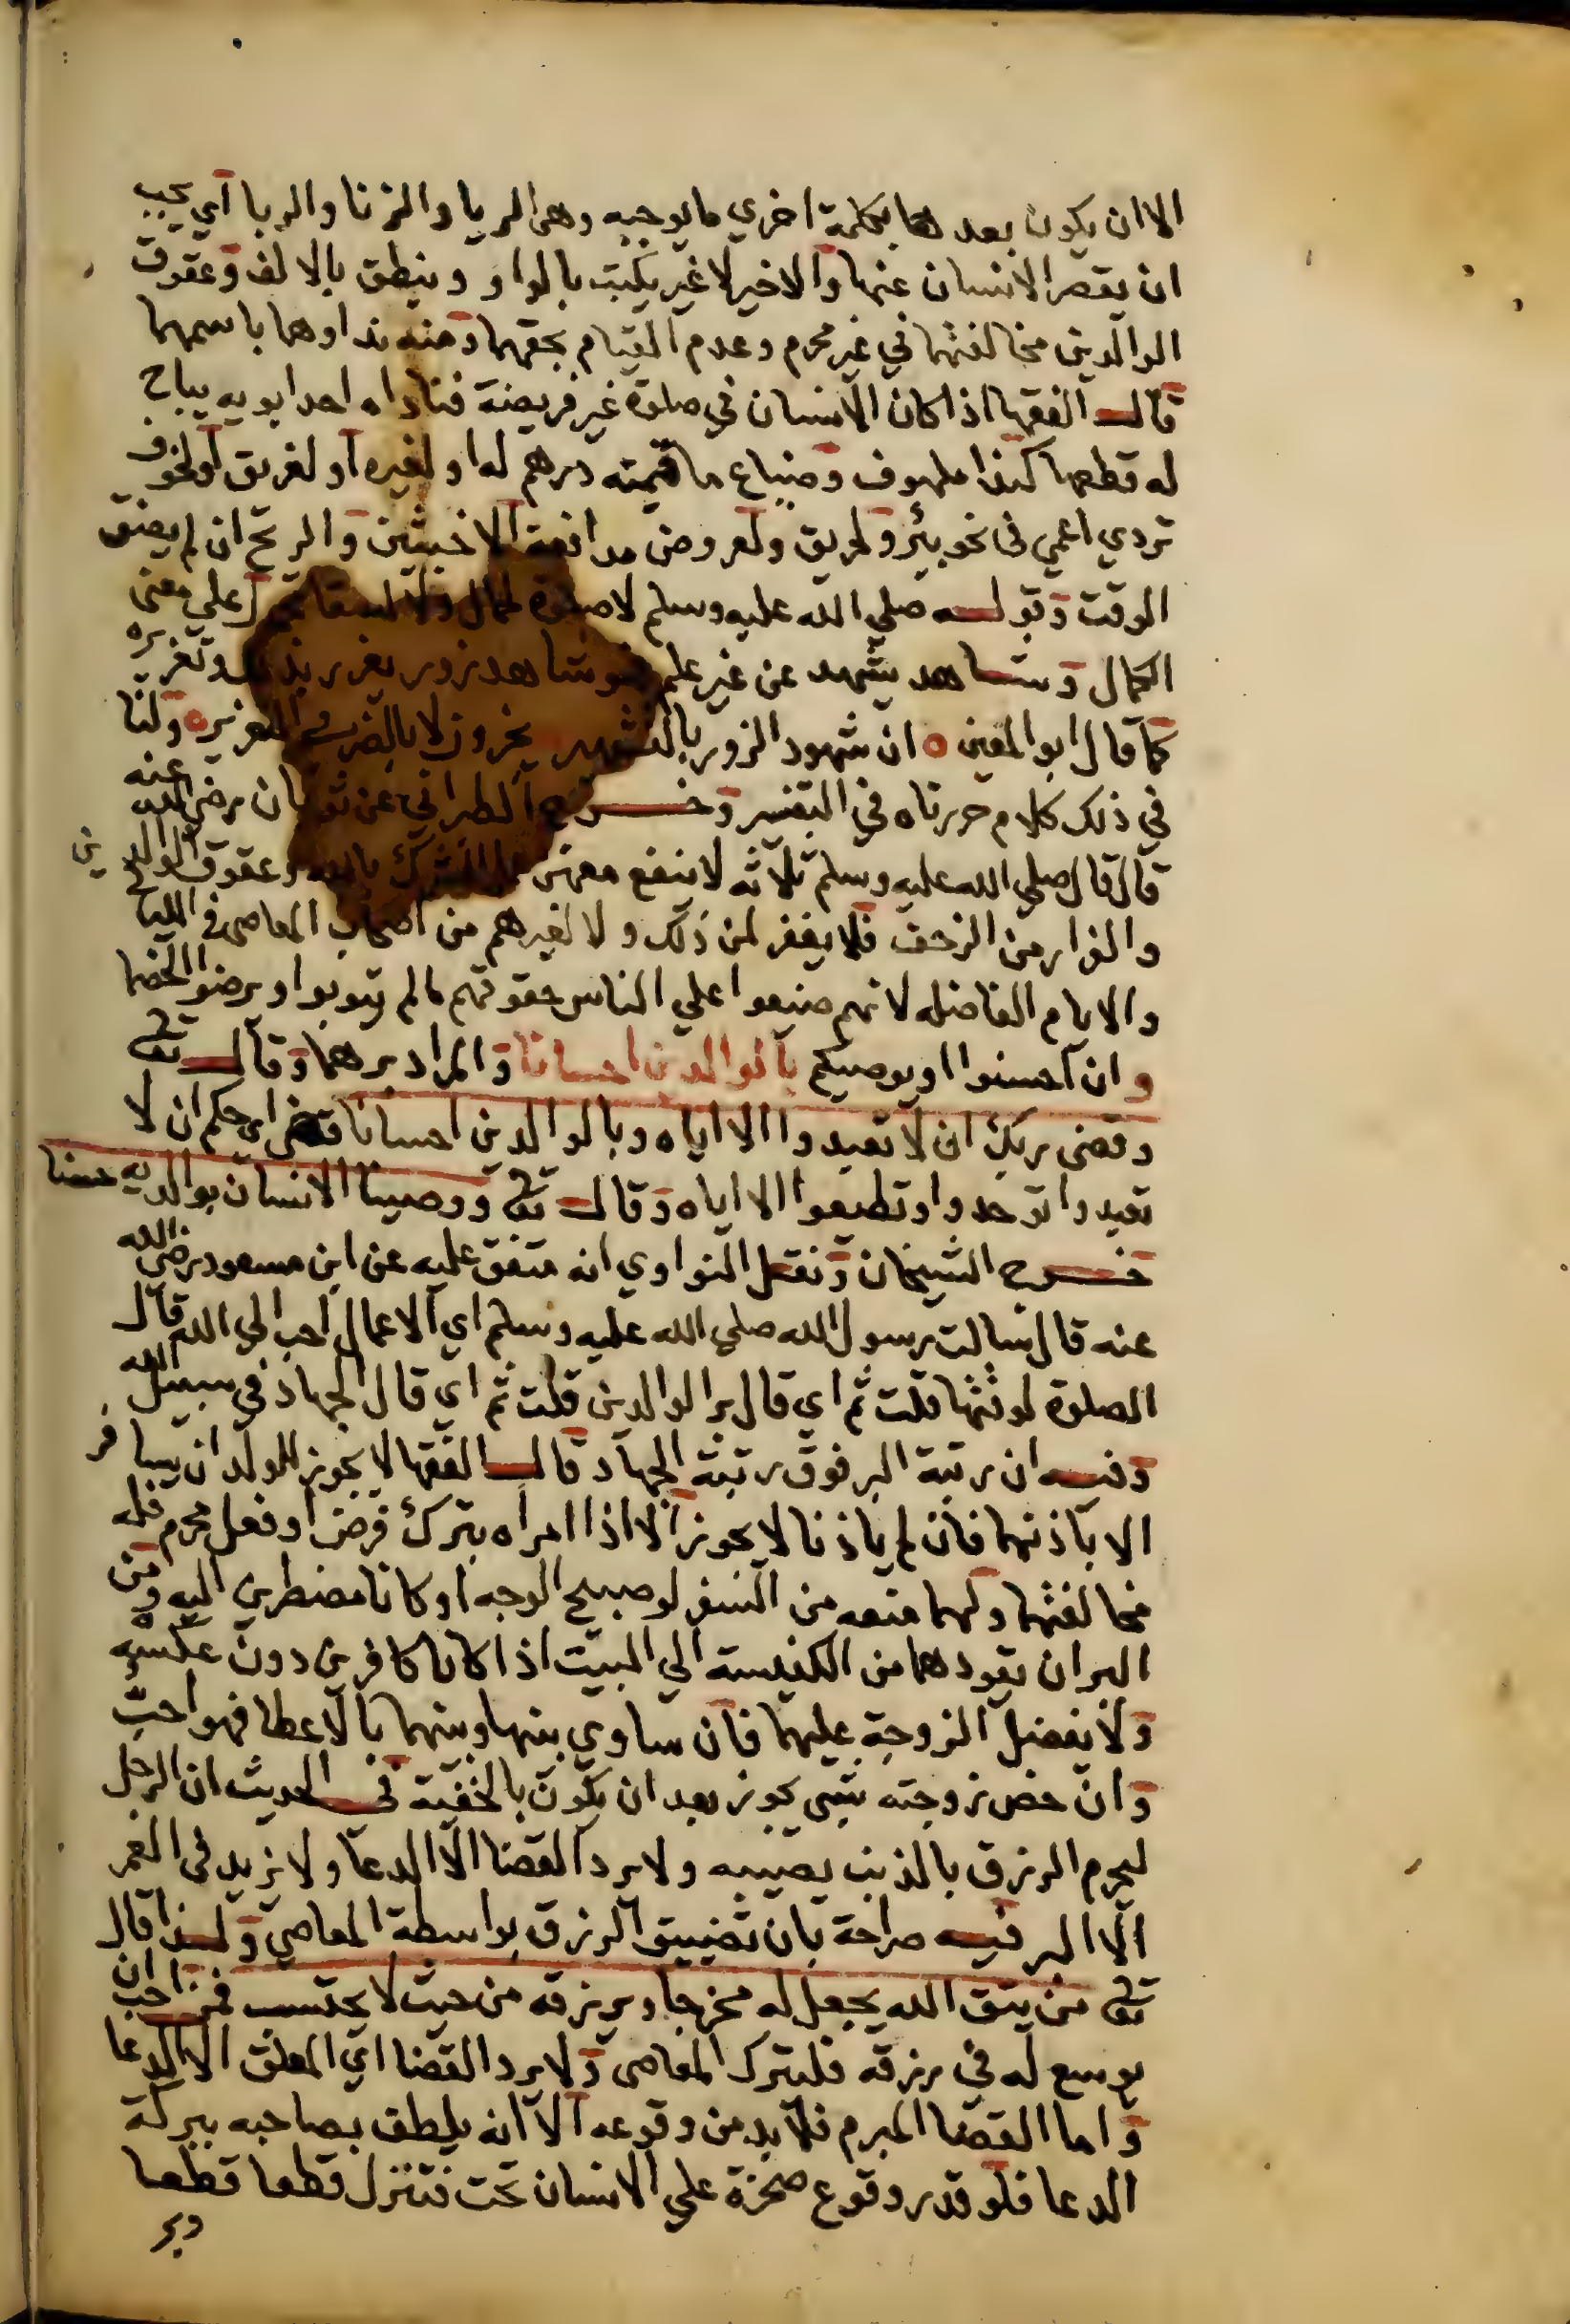 الا ان يكون بعدها بكلمة اخري ما يوجبه وهى الريا والزنا والربا اي يجب
ان يقصر الانسان عنها والاخير لا غير يكتب بالواو وينطق بالالف وعقوق
الوالدين مخالفتهما في غير محرم وعدم القيام بحقهما ومنه نداوهما باسمهما
قال الفقها اذا كان الانسان في صلوة غير فريضة فناداه احد ابويه يباح
له قطعها كذا ملهوف وضياع ما قيمته درهم له او لغيره او لغريق او لخوف
تردي اعمي فى نحو بئر ولحريق ولعروض مدافعة الاخبثين والريح ان لم يضق
الوقت وقوله صلي الله عليه وسلم لاصلوة على معنى
الكمال وشاهد يشهد عن غير علم فهو شاهد زور يعزر وتعزيره
كما قال ابو المعين ان شهود الزور بالتشهير يعزرون لا بالضرب ولنا
في ذلك كلام حررناه في التفسير وخرج الطبراني عن ثوبان رضي الله عنه
قال قال صلي الله عليه وسلم ثلاثه لا ينفع معهن عمل الشرك بالله وعقوق الوالدين
والفرار من الزحف فلا يغفر لمن ذلك ولا لغيرهم من اصحاب المعاصى في الليالي
والايام الفاضله لانهم ضيعوا علي الناس حقوقهم ما لم يتوبوا ويرضوا الخصما
وان احسنوا او يوصيكم بالوالدين احسانا والمراد برهما وقال تعالى
وقضى ربك ان لا تعبدوا الا اياه وبالوالدين احسانا قضى اي حكم ان لا
تعبدوا توحدوا وتطيعوا الا اياه وقال تعالى ووصينا الانسان بوالديه حسنا
خرج الشيخان ونقل النواوي انه متفق عليه عن ابن مسعود رضى الله
عنه قال سالت رسول الله صلي الله عليه وسلم اي الاعمال احب الي الله قال
الصلوة لوقتها قلت ثم اي قال بر الوالدين قلت ثم اي قال الجهاد في سبيل الله
وفيه ان رتبة البر فوق رتبة الجهاد قال الفقها لا يجوز للولد ان يسافر
الا باذنهما فان لم ياذنا لا يجوز الا اذا امراه بترك فرض او فعل محرم فله
مخالفتهما ولهما منعه من السفر لو صبيح الوجه او كانا مضطرين اليه ومن
البر ان يقودهما من الكنيسة الي البيت اذا كانا كافرين دون عكسه
ولا يفضل الزوجة عليهما فان ساوي بينها وبينهما بالاعطا فهو احب
وان خص زوجته بشي يجوز بعد ان يكون بالخفية في الحديث ان الرجل
ليحرم الرزق بالذنب يصيبه ولا يرد القضا الا الدعا ولا يزيد فى العمر
الا البر فيه صراحة بان تضييق الرزق بواسطة المعاصي ولهذا قال
تعالى من يتق الله يجعل له مخرجا ويرزقه من حيث لا يحتسب فمن احب ان
يوسع له في رزقه فليترك المعاصى ولا يرد القضا اي المعلق الا الدعا
واما القضا المبرم فلا بد من وقوعه الا انه يلطف بصاحبه ببركة
الدعا فلو قدر وقوع صخرة علي الانسان تحت فتنزل قطعا قطعا